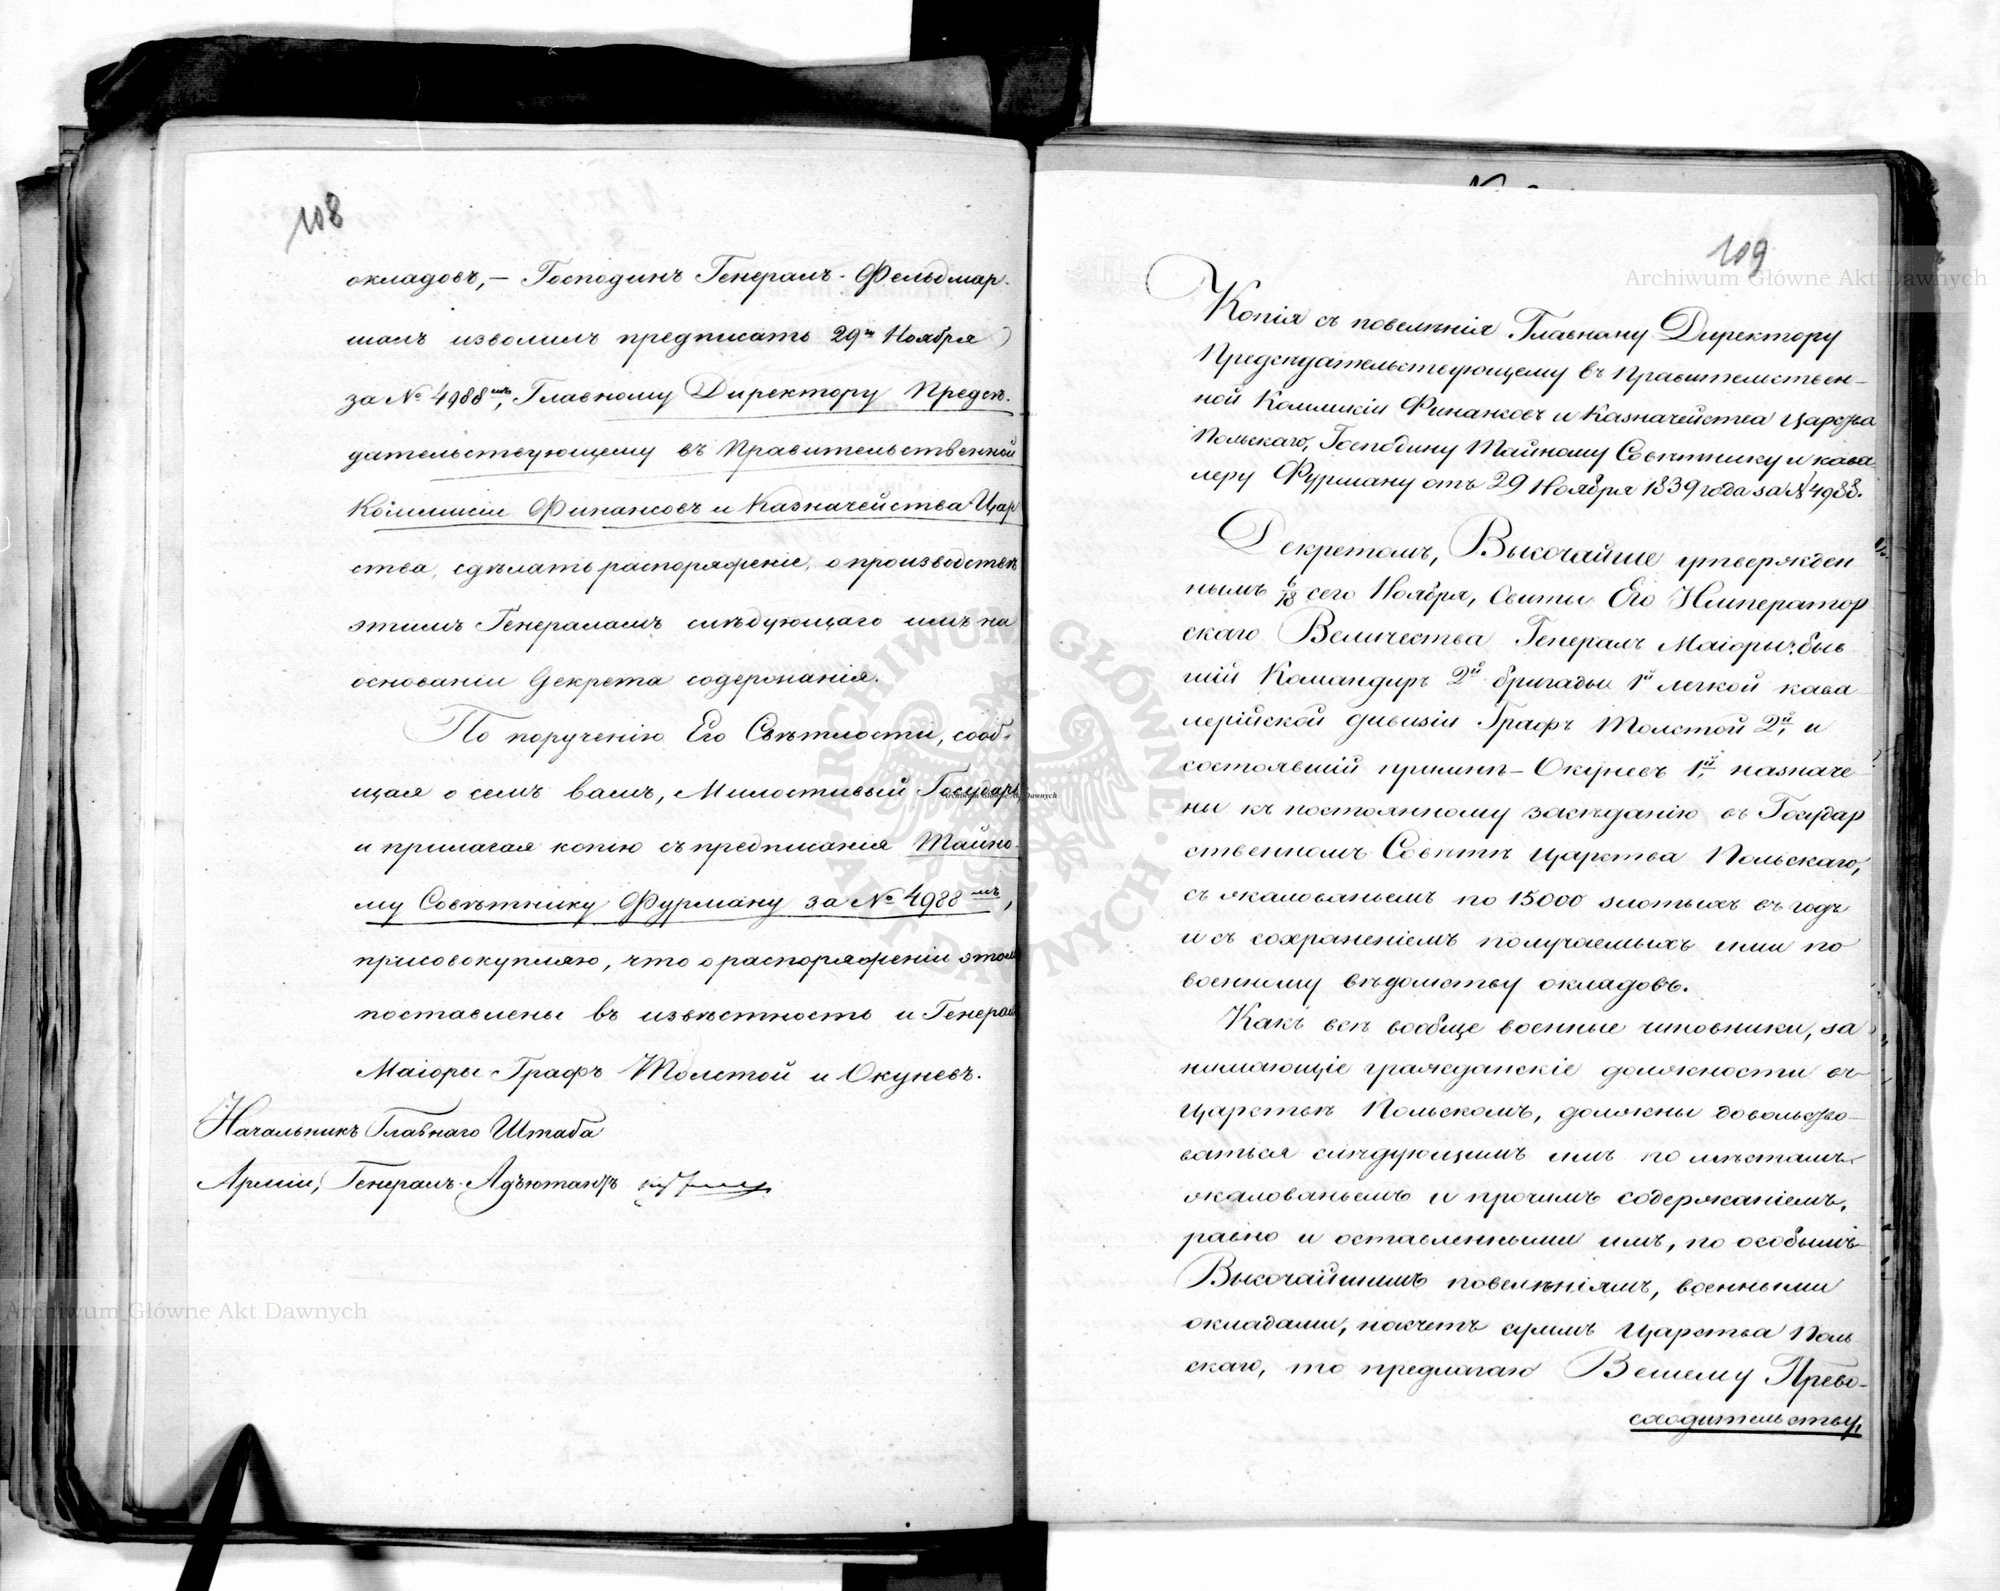 108
окладовъ, — Господинъ Генералъ-Фельдмар-
шалъ изволилъ предписать 29го Ноября
за № 4988мъ, Главному Директору Предсѣ-
дательствующему въ Правительственной
Коммисіи Финансовъ и Казначейства Цар
ства, сдѣлать распоряженіе, о производствѣ
этимъ Генераламъ слѣдующаго имъ на
основаніи Декрета содержанія.
По порученію Его Свѣтлости, сооб-
щая о семъ вамъ, Милостивый Государь
и прилагая копію съ предписанія Тайно-
му Совѣтнику Фурману за № 4988мъ,
присовокупляю, что о распоряженіи этомъ
поставлены въ извѣстность и Генералъ
Маіоры Графъ Толстой и Окуневъ.
Начальникъ Главнаго Штаба
Арміи, Генералъ-Адъютантъ
109
Копія съ повелѣнія Главному Директору
Предсѣдательствующему въ Правительствен-
ной Коммисіи Финансовъ и Казначейства Царства
Польскаго, Господину Тайному Совѣтнику и кава
леру Фурману отъ 29 Ноября 1839 года за № 4988.
Декретомъ, Высочайше утвержден
нымъ 6/18 сего Ноября, Свиты Его Император
скаго Величества Генералъ Маіоры: быв
шій Командиръ 2й бригады 1й легкой кава
лерійской дивизіи Графъ Толстой 2й, и
состоявшій при мнѣ — Окуневъ 1й, назначе
ны къ постоянному засѣданію въ Государ
ственномъ Совѣтѣ Царства Польскаго,
съ жалованьемъ по 15000 злотыхъ въ годъ
и съ сохраненіемъ получаемыхъ ими по
военному вѣдомству окладовъ.
Какъ всѣ вообще военные чиновники, за
нимающіе гражданскіе должности въ
Царствѣ Польскомъ, должны довольство-
ваться слѣдующимъ имъ по мѣстамъ
жалованьемъ и прочимъ содержаніемъ,
равно и оставленными имъ, по особымъ
Высочайшимъ повелѣніямъ, военными
окладами, насчетъ суммъ Царства Поль
скаго, то предлагаю Вашему Прево-
сходительству,
Archiwum Główne Akt Dawnych
Archiwum Główne Akt Dawnych
Archiwum Główne Akt Dawnych
ARCHIWUM GŁÓWNE AKT DAWNYCH